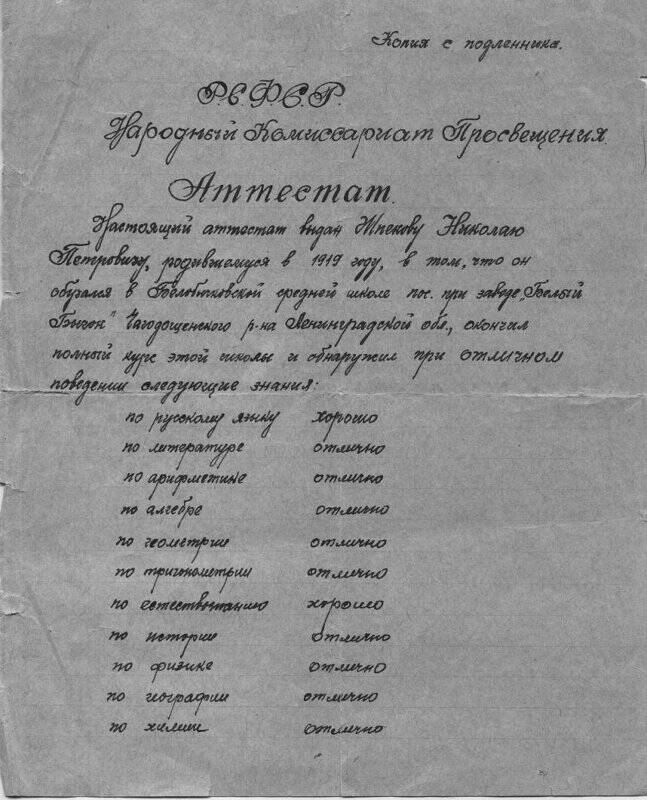 Копия с подленника.
Р.С.Ф.С.Р.
Народный Комиссариат Просвещения.
Аттестат.
Настоящий аттестат выдан Шпекову Николаю
Петровичу, родившемуся в 1919 году, в том, что он
обучался в Белобычковской средней школе пос. при заводе „Белый
Бычок" Чагодощенского р-на Ленинградской обл., окончил
полный курс этой школы и обнаружил при отличном
поведении следующие знания:
по русскому языку хорошо
по литературе отлично
по арифметике отлично
по алгебре отлично
по геометрии отлично
по тригонометрии отлично
по естествознанию хорошо
по истории отлично
по физике отлично
по географии отлично
по химии отлично